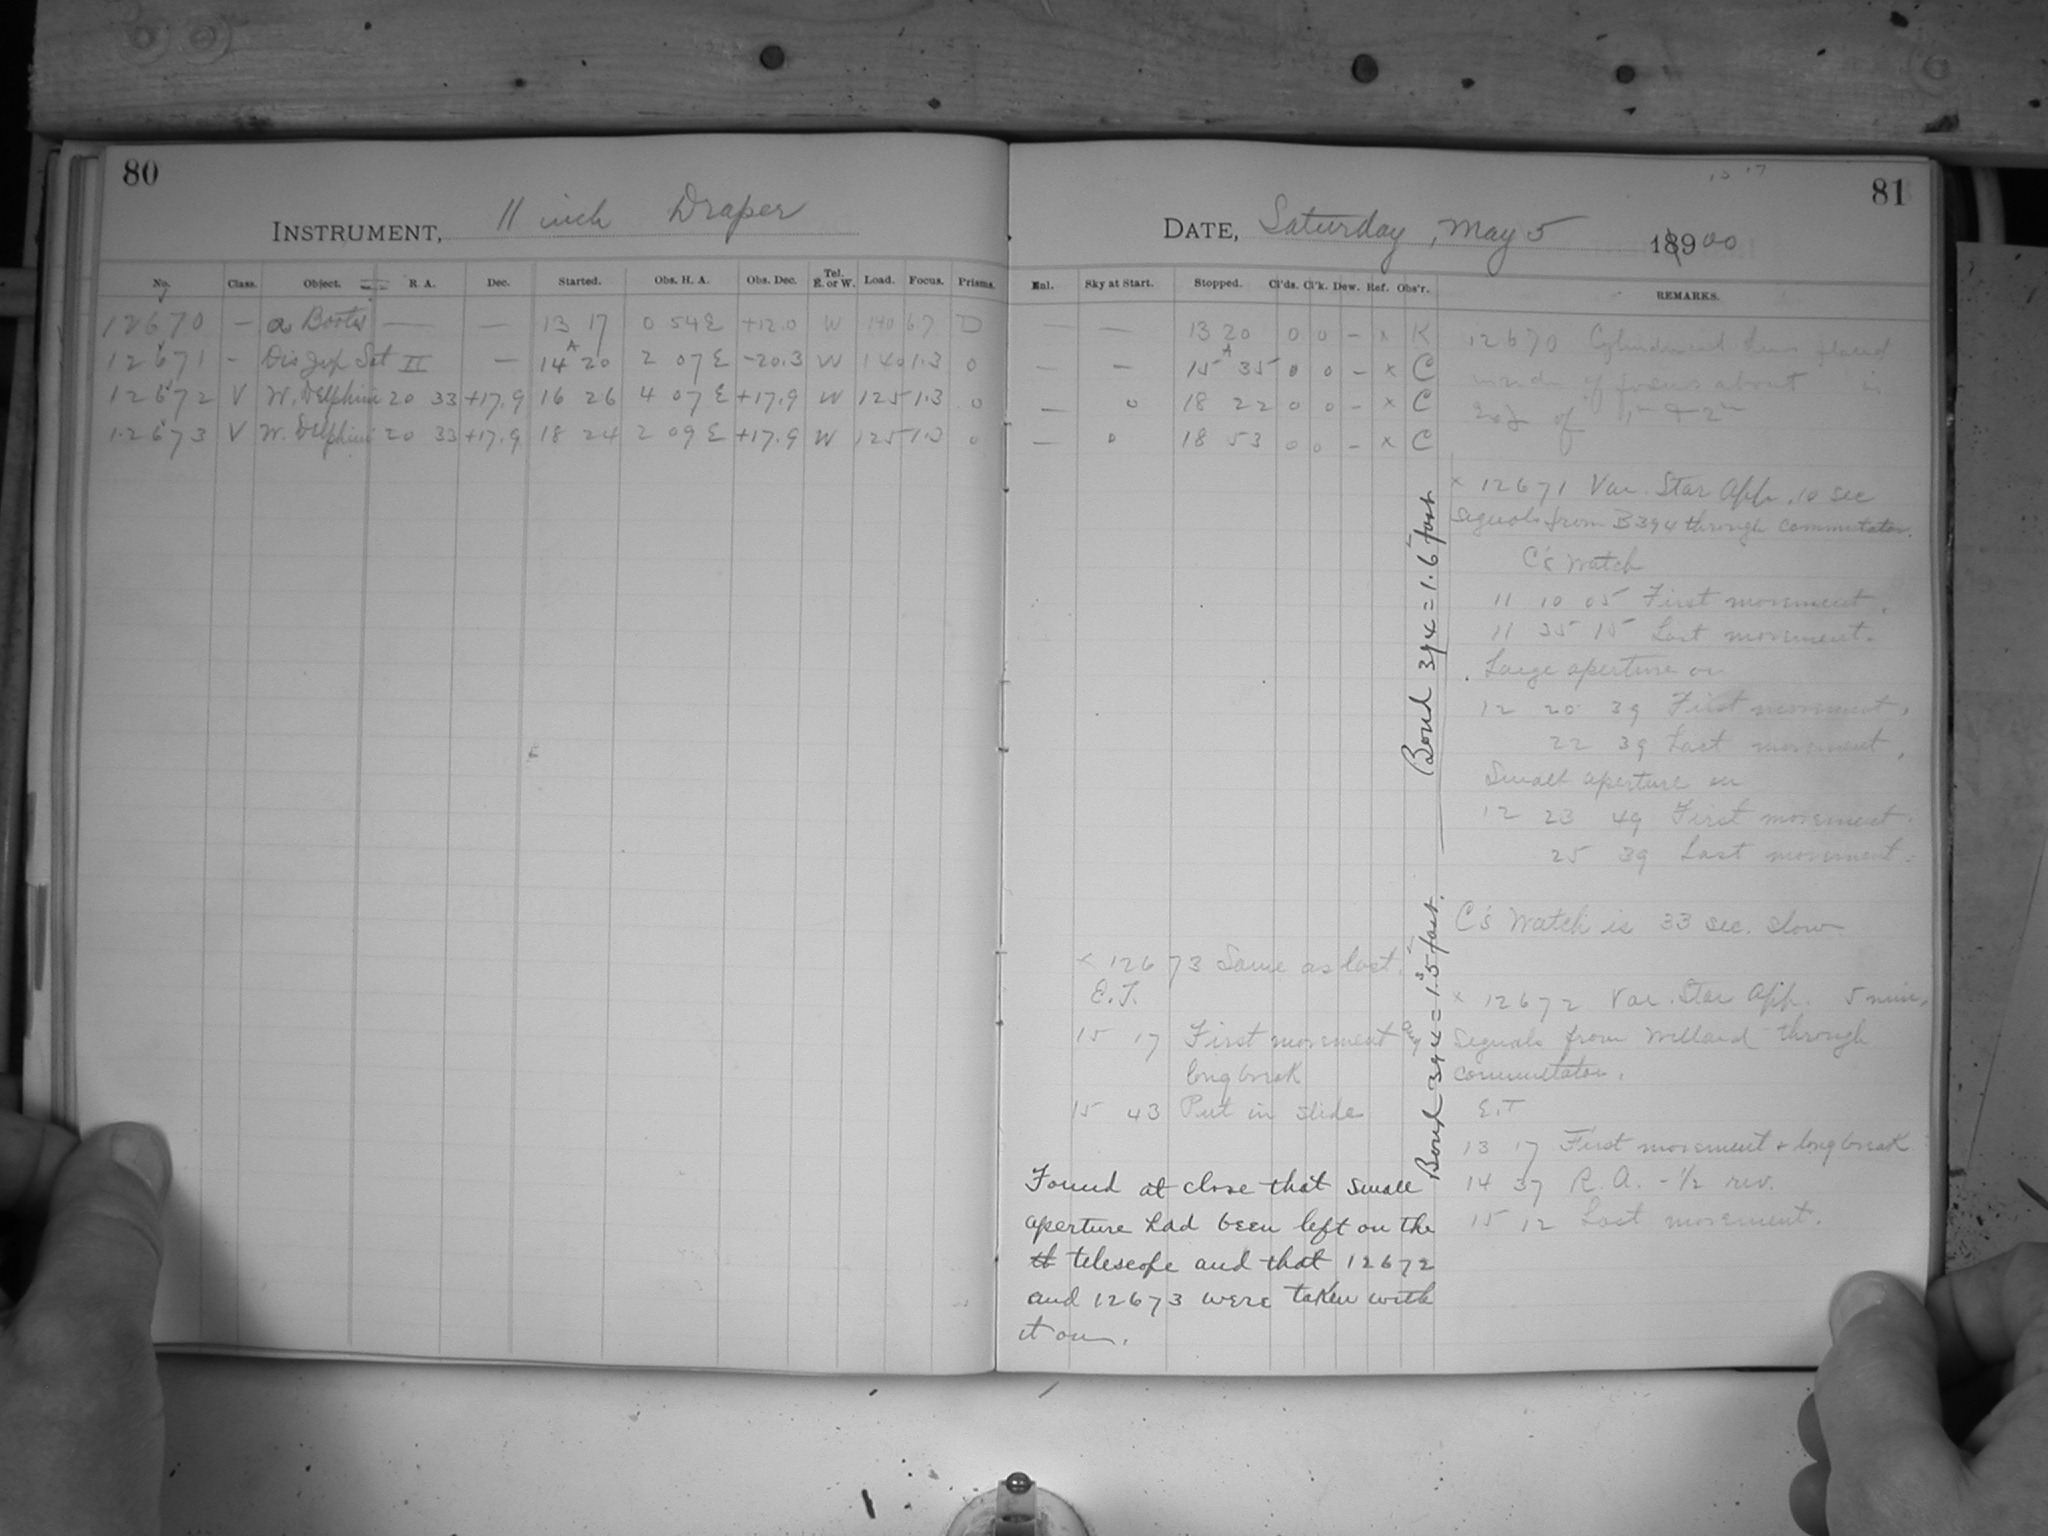 80
INSTRUMENT, 11 inch Draper
No. Class. Object. R. A. Dec. Started. Obs. H. A. Obs. Dec. Tel. E. or W. Load. Focus. Prisms.
12670 — α Bootis — — 13 17 0 54 E +12.0 W 140 6.7 D
12671 — Dis Jup Sat II — 14 20 2 07 E -20.3 W 140 1.3 0
12672 V W. Delphini 20 33 +17.9 16 26 4 07 E +17.9 W 125 1.3 0
12673 V W. Delphini 20 33 +17.9 18 24 2 09 E +17.9 W 125 1.3 0
81
DATE, Saturday, May 5 18900
Enl. Sky at Start. Stopped. Cl'ds. Cl'k. Dew. Ref. Obs'r. REMARKS.
— — 13 20 0 0 — x K
— — 15 35 0 0 — x C
— 0 18 22 0 0 — x C
— 0 18 53 0 0 — x C
12670 Cylindrical lens placed
inside of focus about
of 1m & 2m
x 12671 Var. Star App. 10 sec
Signals from B394 through commutator.
C's Watch
11 10 05 First movement.
11 35 15 Last movement.
Large aperture on
12 20 39 First movement.
22 39 Last movement.
Small aperture on
12 23 49 First movement.
25 39 Last movement.
C's Watch is 33 sec. slow
x 12672 Var. Star App. 5 min.
Signals from Willard through
commutator.
E.T
13 17 First movement + long break
14 37 R.A. - 1/2 rev.
15 12 Last movement.
Bond 394 = 1.6s fast
Bond 394 = 1.5s fast.
x 12673 Same as last.
E.T.
15 17 First movement and
long break
15 43 Put in slide
Found at close that small
aperture had been left on the
th telescope and that 12672
and 12673 were taken with
it on.